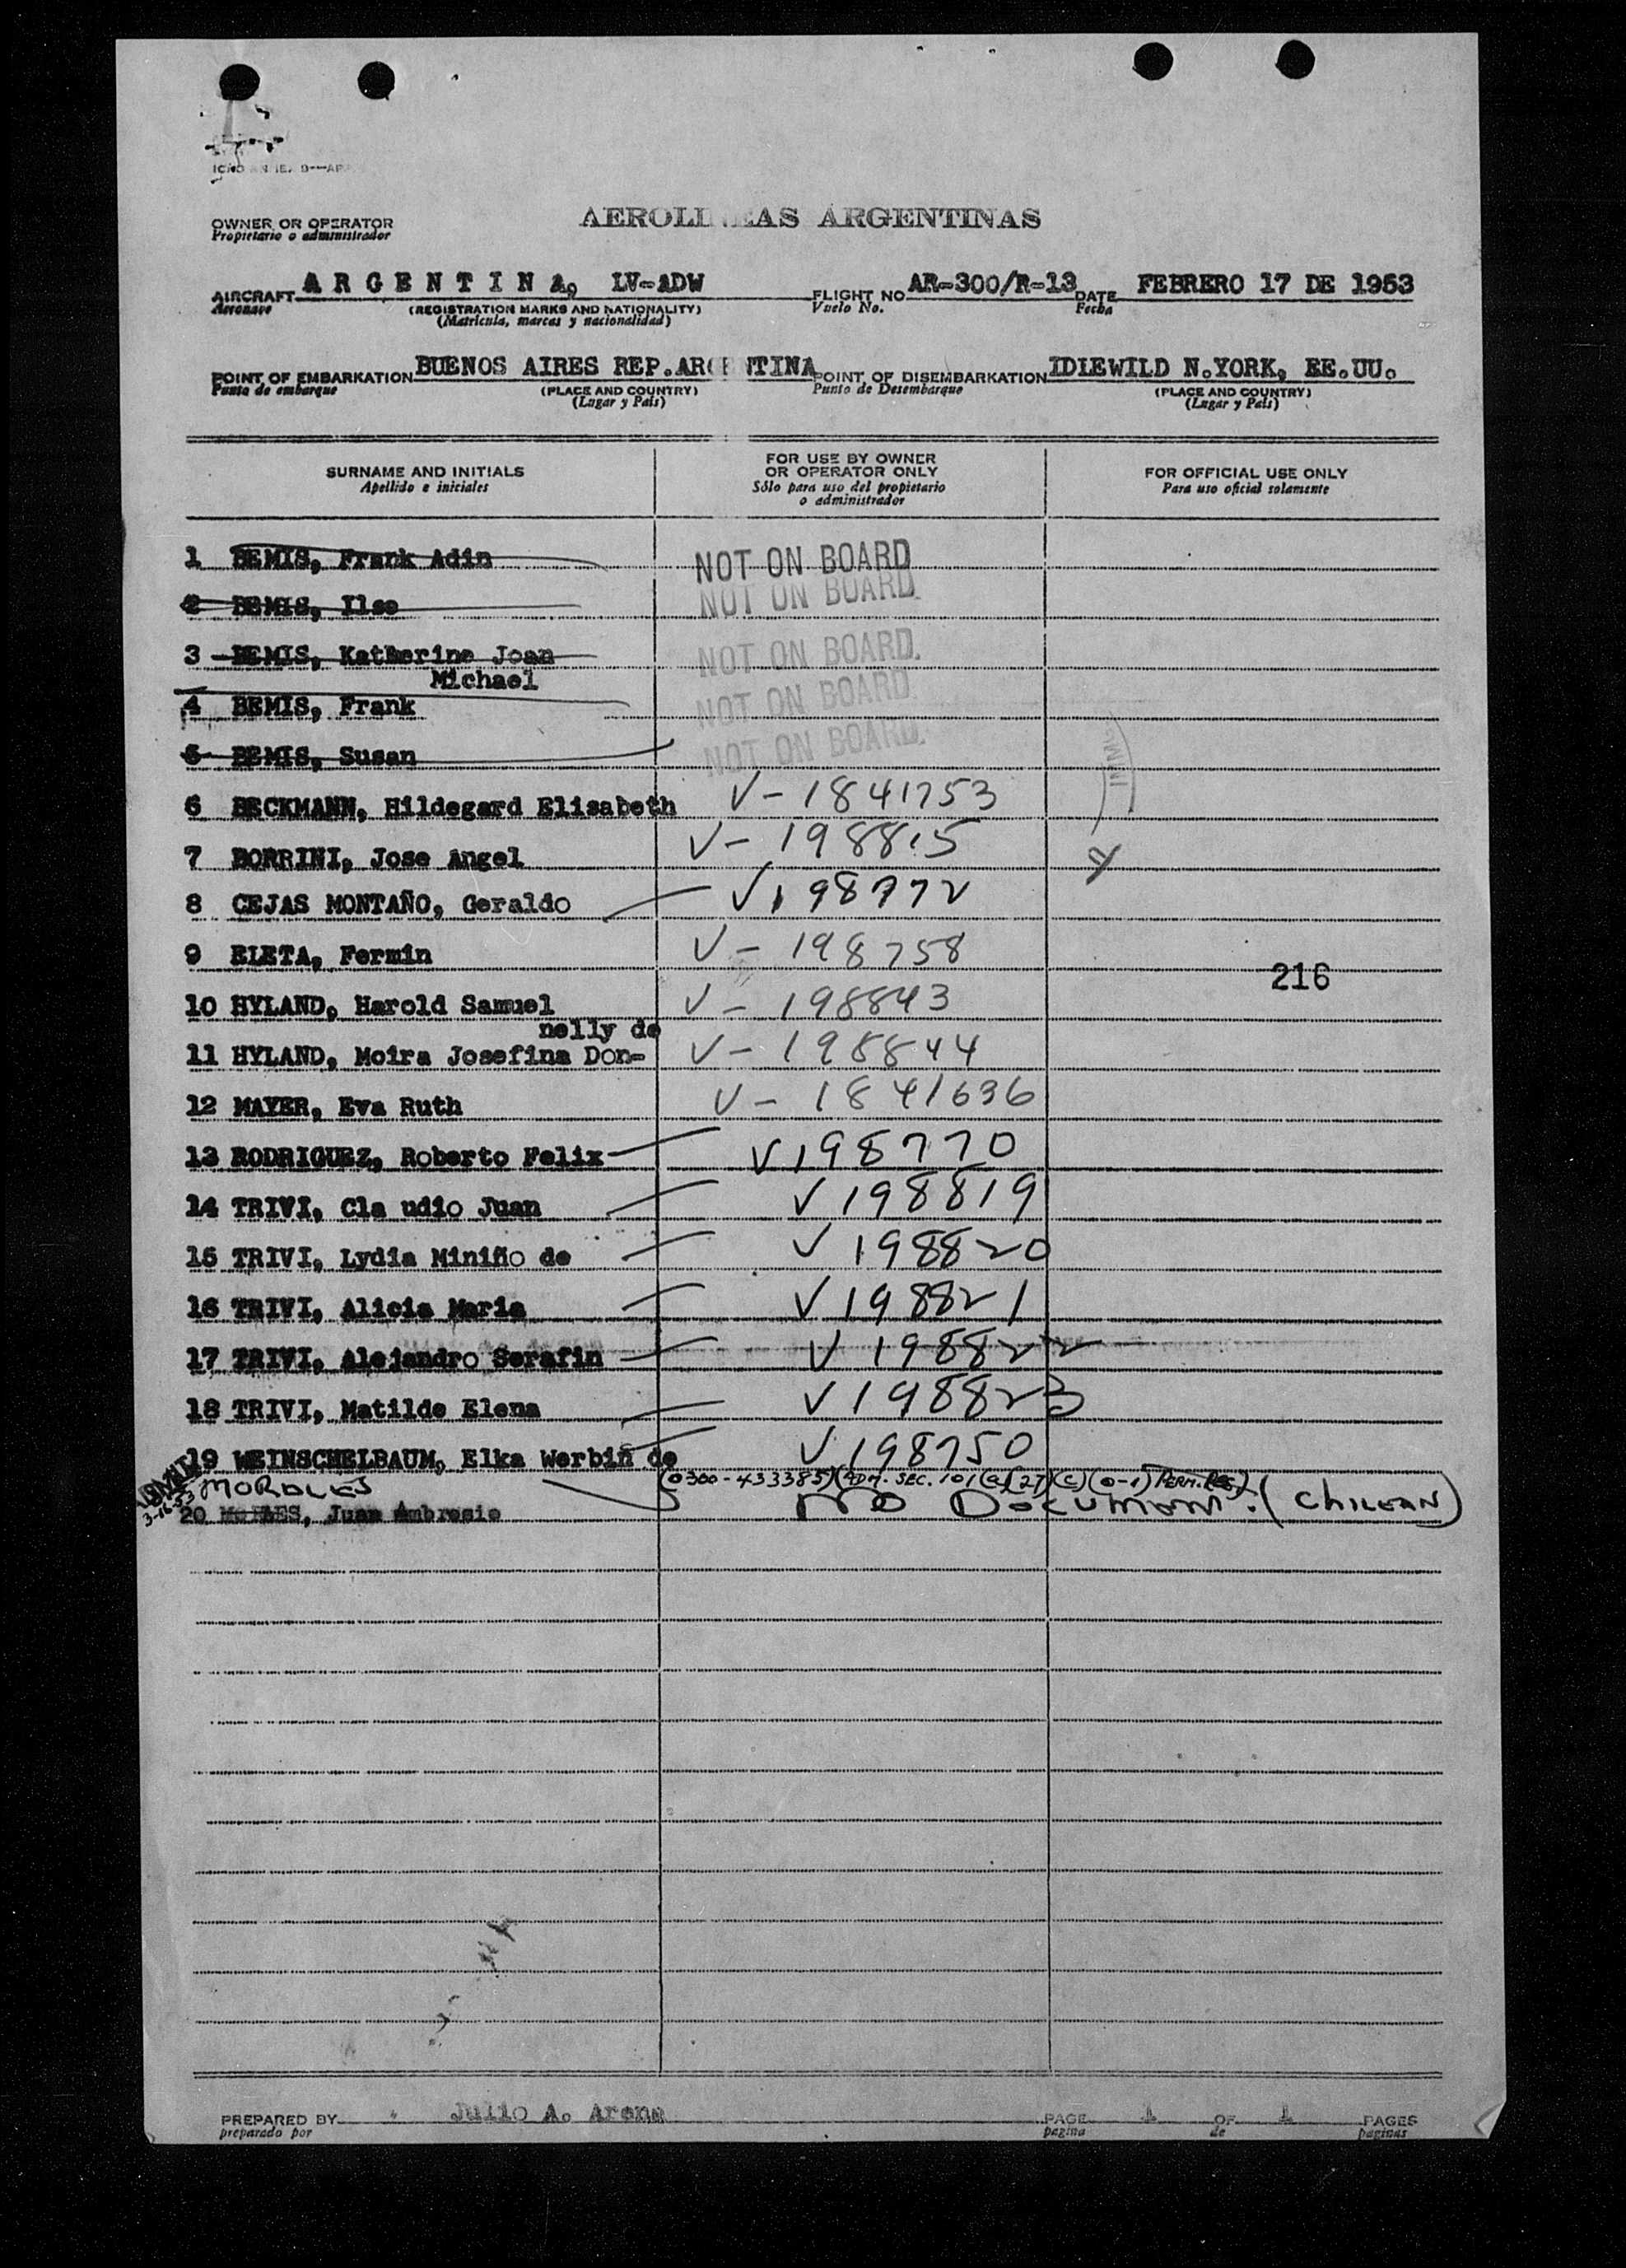 OWNER OR OPERATOR
Propietario o administrador
AEROLI EAS ARGENTINAS
AIRCRAFT A R G E N T I N A, LV-ADW FLIGHT NO. AR-300/R-13 DATE FEBRERO 17 DE 1953
Aeronave (REGISTRATION MARKS AND NATIONALITY) Vuelo No. Fecha
(Matrícula, marcas y nacionalidad)
POINT OF EMBARKATION BUENOS AIRES REP.ARGENTINA POINT OF DISEMBARKATION IDLEWILD N.YORK, EE.UU.
Punto de embarque (PLACE AND COUNTRY) Punto de Desembarque (PLACE AND COUNTRY)
(Lugar y País) (Lugar y País)
SURNAME AND INITIALS
Apellido e iniciales
FOR USE BY OWNER
OR OPERATOR ONLY
Sólo para uso del propietario
o administrador
FOR OFFICIAL USE ONLY
Para uso oficial solamente
1 BEMIS, Frank Adin NOT ON BOARD
2 BEMIS, Ilse NOT ON BOARD.
3 BEMIS, Katherine Joan NOT ON BOARD.
Michael
4 BEMIS, Frank NOT ON BOARD.
5 BEMIS, Susan NOT ON BOARD.
6 BECKMANN, Hildegard Elisabeth V-1841753
7 BORRINI, Jose Angel V-198815
8 CEJAS MONTAÑO, Geraldo V198772
9 ELETA, Fermin V-198758
216
10 HYLAND, Harold Samuel V-198843
nelly de
11 HYLAND, Moira Josefina Don- V-198844
12 MAYER, Eva Ruth V-1841636
13 RODRIGUEZ, Roberto Felix V198770
14 TRIVI, Cla udio Juan V198819
15 TRIVI, Lydia Miniño de V198820
16 TRIVI, Alicia Maria V198821
17 TRIVI, Alejandro Serafin V198822
18 TRIVI, Matilde Elena V198823
19 WEINSCHELBAUM, Elka Werbiñ de V198750
MORALES (0300-433385) (ADM. SEC. 101(a)(27)(c)(0-1) PERM. RES.)
3-16-53
20 Juan Ambrosio NO Document. (CHILEAN)
PREPARED BY Julio A. Arena PAGE 1 OF 1 PAGES
preparado por pagina de paginas